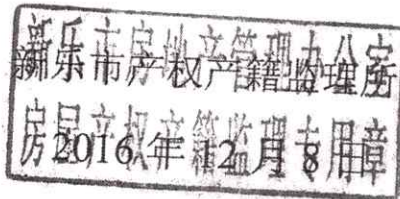 新乐市房地产管理办公室
新乐市产权产籍监理所
房屋产权产籍监理专用章
2016年12月8日